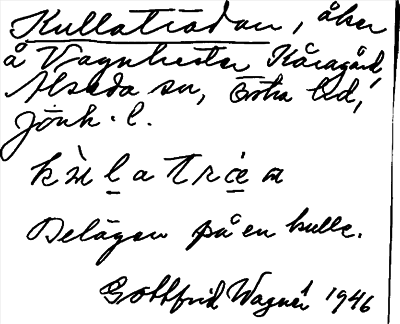 Kullaträdan, åker
å Vagnhester Kåragård,
Alseda sn, Östra hd,
Jönk. l.
Belägen på en kulle.
Gottfrid Wagnér 1946